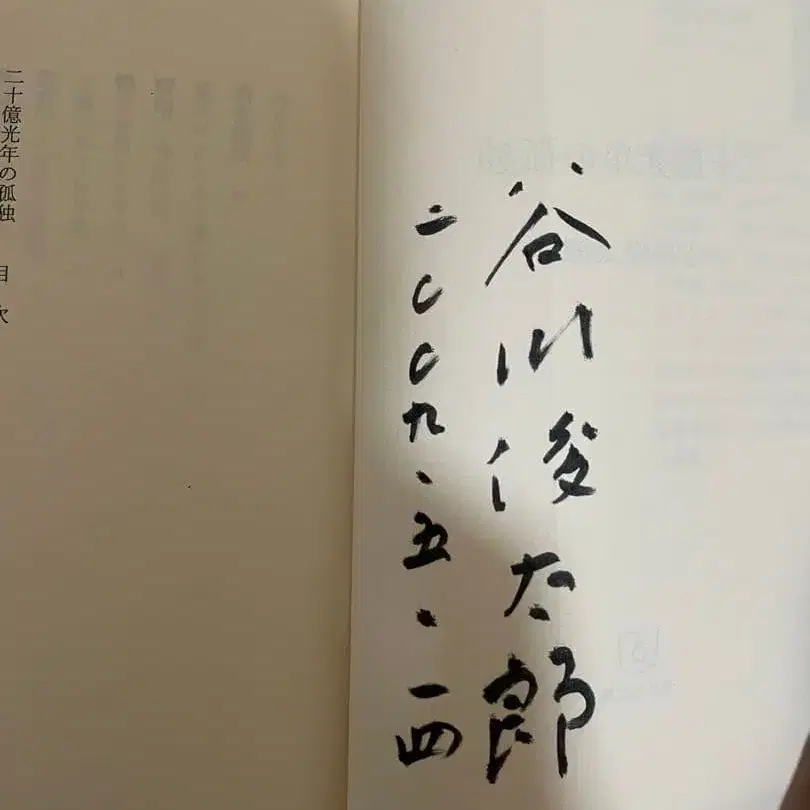 谷川俊太郎
二〇〇九・五・一四
二十億光年の孤独 目次